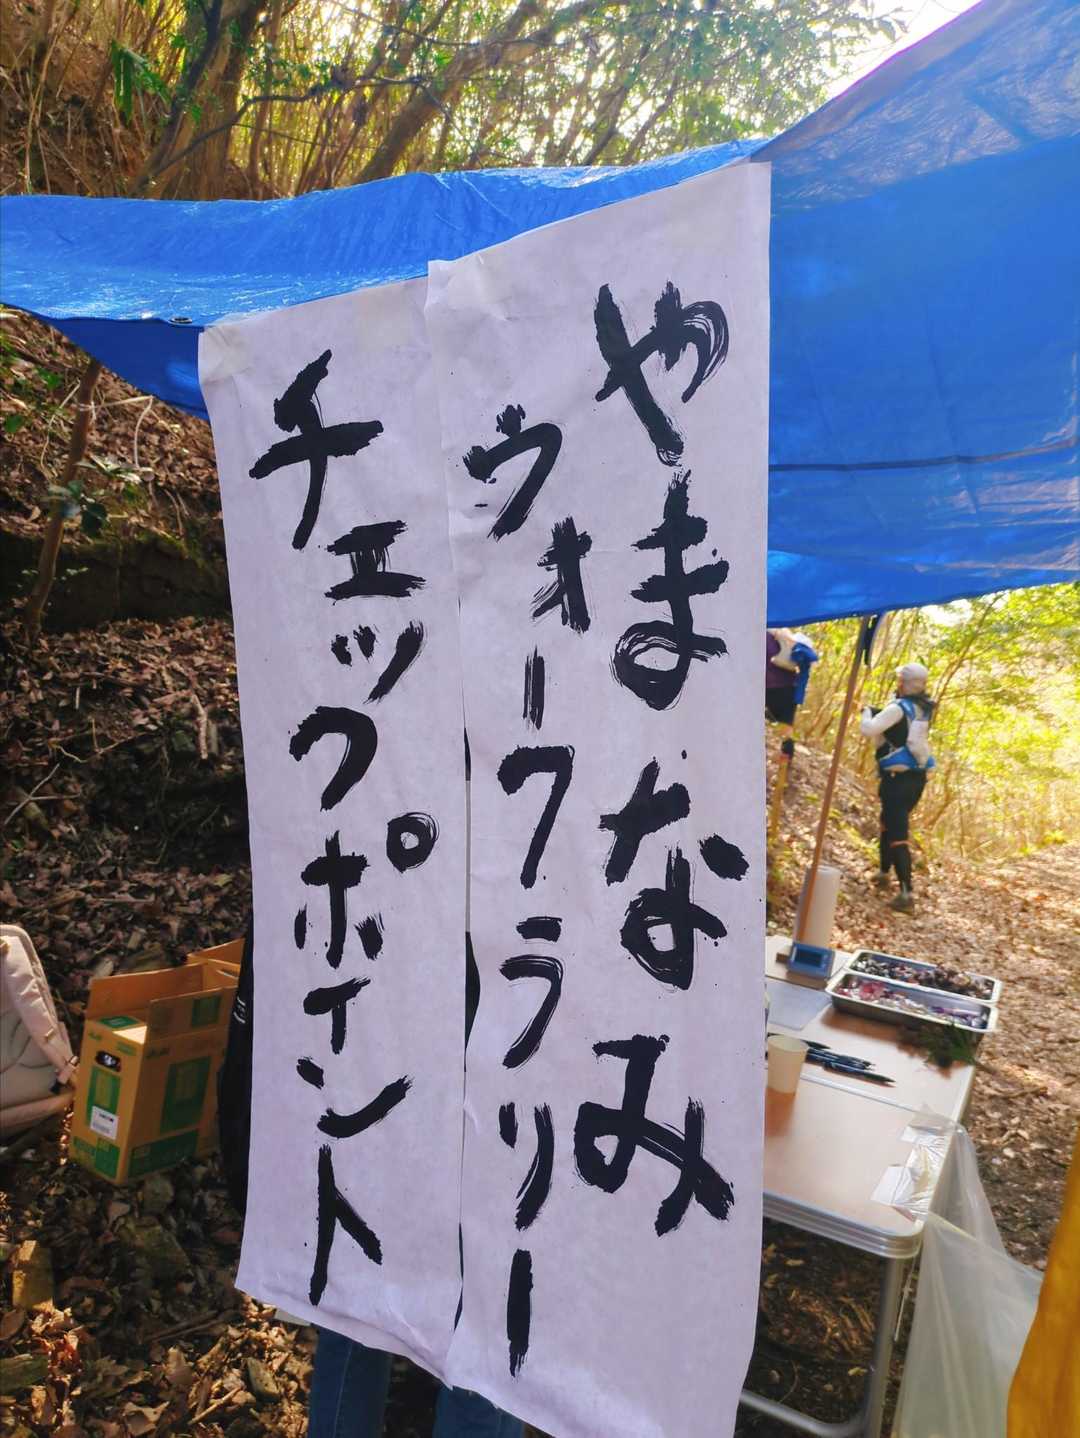 やまなみ
ウォークラリー
チェックポイント